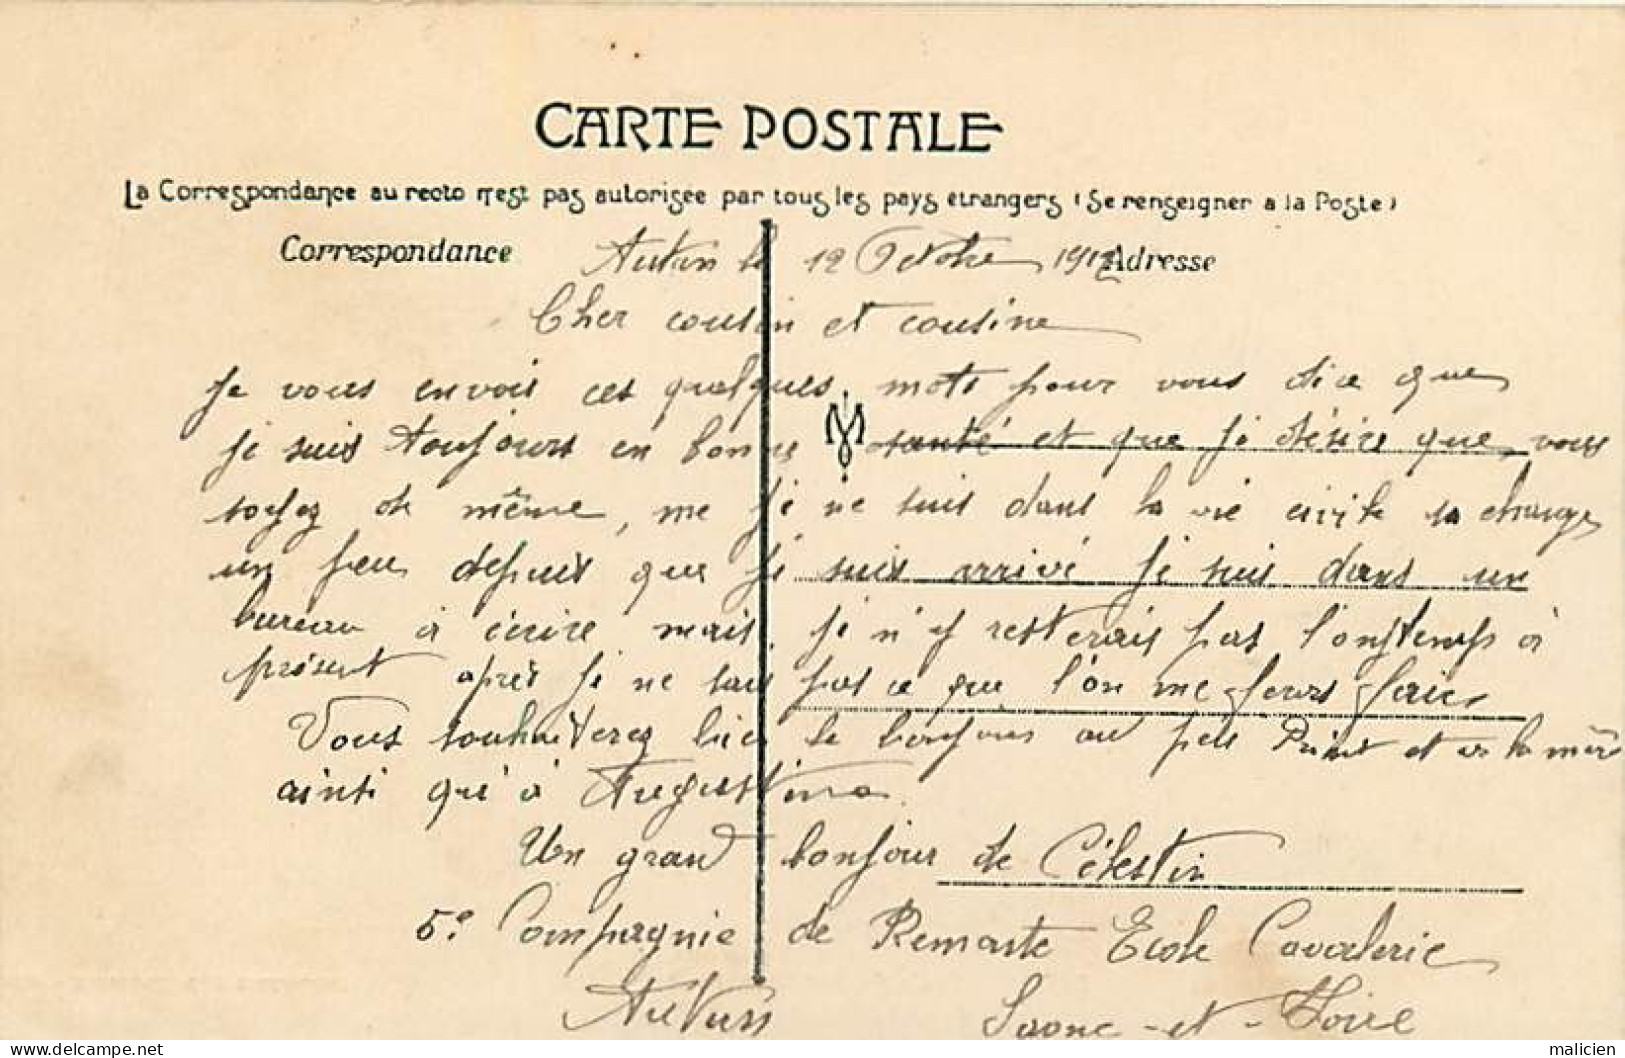 CARTE POSTALE
La Correspondance au recto n'est pas autorisée par tous les pays étrangers (Se renseigner a la Poste)
Correspondance Adresse
Autun le 12 Octobre 1912
Cher cousin et cousine
Je vous envois ces quelques mots pour vous dire que
je suis toujours en bonne santé et que je désire que vous
soyez de même, me je ne suis dans la vie civile sa change
un peu depuis que je suis arrivé je suis dans un
bureau à écrire mais je n'y resterais pas longtemps à
présent après je ne sais pas ce que l'on me feras faire
Vous souhaiterez bien le bonjour au père et a la mère
ainsi qu'à Augustine
Un grand bonjour de Célestin
5e Compagnie de Remonte Ecole Cavalerie
Autun Saone-et-Loire
malicien